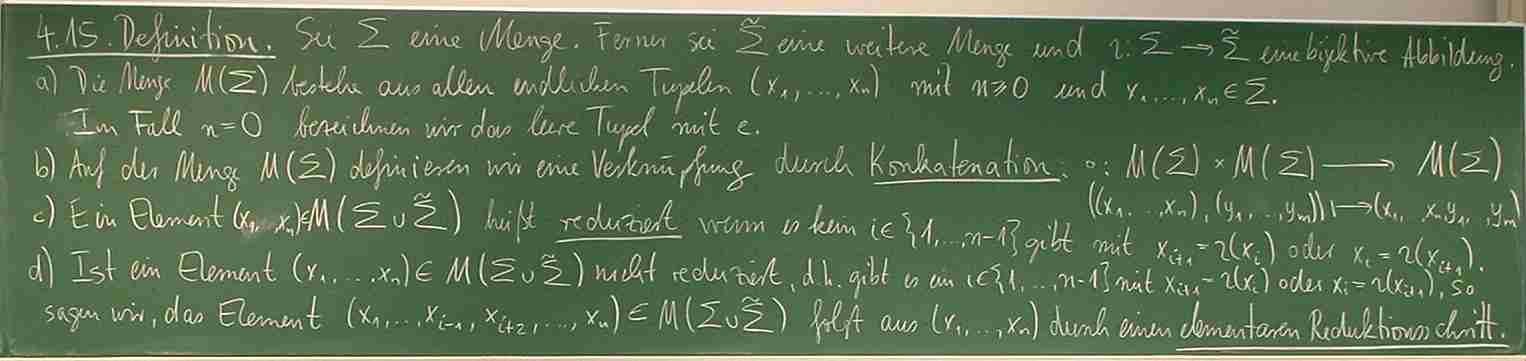 4.15. Definition. Sei Σ eine Menge. Ferner sei Σ̃ eine weitere Menge und ι: Σ → Σ̃ eine bijektive Abbildung.
a) Die Menge M(Σ) bestehe aus allen endlichen Tupeln (x₁, ..., xₙ) mit n ≥ 0 und x₁, ..., xₙ ∈ Σ.
Im Fall n = 0 bezeichnen wir das leere Tupel mit e.
b) Auf der Menge M(Σ) definieren wir eine Verknüpfung durch Konkatenation: ∘: M(Σ) × M(Σ) ⟶ M(Σ)
((x₁, .., xₙ), (y₁, .., yₘ)) ↦ (x₁, .. xₙ, y₁, .., yₘ)
c) Ein Element (x₁, .., xₙ) ∈ M(Σ ∪ Σ̃) heißt reduziert wenn es kein i ∈ {1, ..., n-1} gibt mit xᵢ₊₁ = ι(xᵢ) oder xᵢ = ι(xᵢ₊₁).
d) Ist ein Element (x₁, ..., xₙ) ∈ M(Σ ∪ Σ̃) nicht reduziert, d.h. gibt es ein i ∈ {1, ..., n-1} mit xᵢ₊₁ = ι(xᵢ) oder xᵢ = ι(xᵢ₊₁), so
sagen wir, das Element (x₁, ..., xᵢ₋₁, xᵢ₊₂, ..., xₙ) ∈ M(Σ ∪ Σ̃) folgt aus (x₁, ..., xₙ) durch einen elementaren Reduktionsschritt.